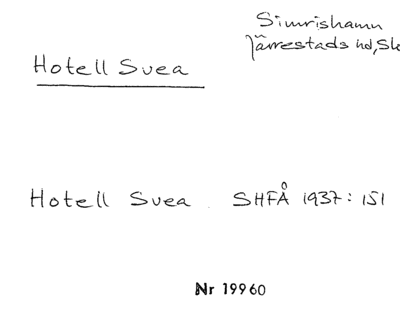 Simrishamn
Järrestads hd, Sk
Hotell Svea
Hotell Svea. SHFÅ 1937: 151
Nr 19960